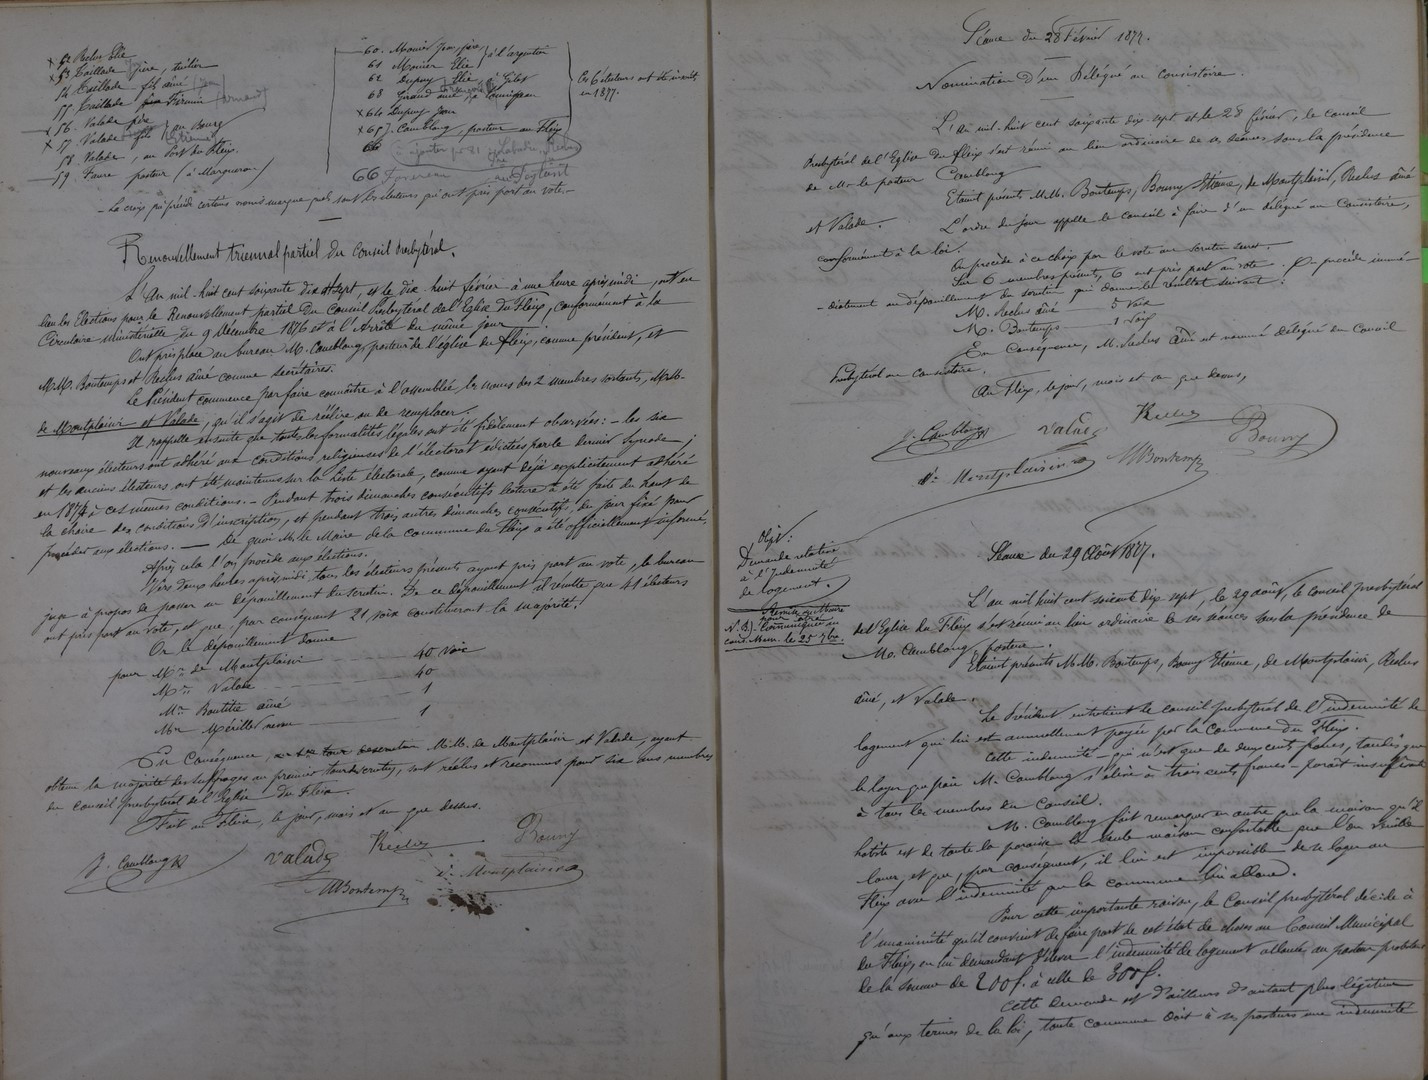 x 52 Reclus Elie
x 53 Taillade père, tuilier
54 Taillade fils aîné
55 Taillade Firmin
x 56. Valade père
x 57. Valade fils } au Bourg
58. Valade, au Port du Fleix.
59. Faure pasteur (à Margueron)
60. Mounier Jean, père
61 Mounier Elie } à l'argentier
62 Dupuy Elie
63 Giraud
x 64 Dupuy Jean
x 65 J. Camblong, pasteur au Fleix
66
Ces 6 électeurs ont été inscrits
en 1877.
66
- La croix qui précède certains noms marque quels sont les électeurs qui ont pris part au vote. -
Renouvellement triennal partiel du Conseil Presbytéral.
L'An mil-huit cent soixante dix-sept, et le dix-huit février à une heure après midi, ont eu
lieu les Elections pour le Renouvellement partiel du Conseil Presbytéral de l'Eglise du Fleix, conformément à la
Circulaire Ministérielle du 9 Décembre 1876 et à l'Arrêté du même jour.
Ont pris place au bureau M. Camblong, pasteur de l'église du Fleix, comme président, et
M.M. Bontemps et Reclus aîné comme secrétaires.
Le Président commence par faire connaître à l'assemblée les noms des 2 membres sortants, M.M.
de Montplaisir et Valade, qu'il s'agit de réélire ou de remplacer.
Il rappelle ensuite que toutes les formalités légales ont été fidèlement observées: - les six
nouveaux électeurs ont adhéré aux conditions religieuses de l'électorat édictées par le dernier synode;
et les anciens électeurs ont été maintenus sur la liste électorale, comme ayant déjà explicitement adhéré
en 1874 à ces mêmes conditions. - Pendant trois dimanches consécutifs lecture a été faite du haut de
la chaire des conditions d'inscription, et pendant trois autres dimanches consécutifs, du jour fixé pour
procéder aux élections. — De quoi M. le Maire de la commune du Fleix a été officiellement informé.
Après cela l'on procède aux élections.
Vers deux heures après midi, tous les électeurs présents ayant pris part au vote, le bureau
juge à propos de passer au dépouillement du scrutin. De ce dépouillement il résulte que 41 électeurs
ont pris part au vote, et que par conséquent 21 voix constitueront la majorité.
Or le dépouillement donne
pour Mr. de Montplaisir — 40 voix
Mr. Valade — 40
Mr. Boutitie aîné — 1
Mr. Mérilhou — 1
En Conséquence, M.M. de Montplaisir et Valade, ayant
obtenu la majorité des suffrages au premier tour de scrutin, sont réélus et reconnus pour six ans membres
du conseil presbytéral de l'Eglise du Fleix.
Fait au Fleix, le jour, mois et an que dessus.
J. Camblong Valade Reclus Bouny
ABontemps de Montplaisir
Séance du 28 Février 1877.
Nomination d'un Délégué au consistoire.
L'An mil-huit cent soixante dix-sept et le 28 février, le conseil
Presbytéral de l'Eglise du Fleix s'est réuni au lieu ordinaire de ses séances, sous la présidence
de M. le pasteur Camblong
Etaient présents M.M. Bontemps, Bouny Etienne, de Montplaisir, Reclus aîné
et Valade.
L'ordre du jour appelle le conseil à faire d'un délégué au Consistoire,
conformément à la loi.
On procède à ce choix par le vote au scrutin secret.
Sur 6 membres présents, 6 ont pris part au vote. On procède immé-
-diatement au dépouillement du scrutin qui donne le résultat suivant:
M. Reclus aîné — 5 voix
M. Bontemps — 1 voix
En Conséquence, M. Reclus aîné est nommé délégué du Conseil
Presbytéral au Consistoire.
Au Fleix, le jour, mois et an que dessus,
J. Camblong Valade Reclus Bouny
de Montplaisir ABontemps
Objet:
Demande relative
à l'Indemnité
de logement.
Remise au Maire
N.B.) - Communiquée au
cons. Mun. le 25 7bre.
Séance du 29 Août 1877.
L'an mil huit cent soixante dix-sept, le 29 août, le conseil presbytéral
de l'Eglise du Fleix s'est réuni au lieu ordinaire de ses séances sous la présidence de
M. Camblong, pasteur.
Etaient présents M.M. Bontemps, Bouny Etienne, de Montplaisir, Reclus
aîné, et Valade.
Le Président entretient le conseil presbytéral de l'indemnité de
logement qui lui est annuellement payée par la Commune du Fleix.
Cette indemnité - qui n'est que de deux cents francs, tandis que
le loyer que paie M. Camblong s'élève à trois cents francs - paraît insuffisante
à tous les membres du Conseil.
M. Camblong fait remarquer en outre que la maison qu'il
habite est de toute la paroisse la seule maison confortable que l'on veuille
louer, et que, par conséquent, il lui est impossible de se loger au
Fleix avec l'indemnité que la commune lui alloue.
Pour cette importante raison, le Conseil presbytéral décide à
l'unanimité qu'il convient de faire part de cet état de choses au Conseil Municipal
du Fleix, en lui demandant d'élever l'indemnité de logement allouée au pasteur protestant
de la somme de 200 f. à celle de 300 f.
Cette demande est d'ailleurs d'autant plus légitime
qu'aux termes de la loi, toute commune doit à ses pasteurs une indemnité